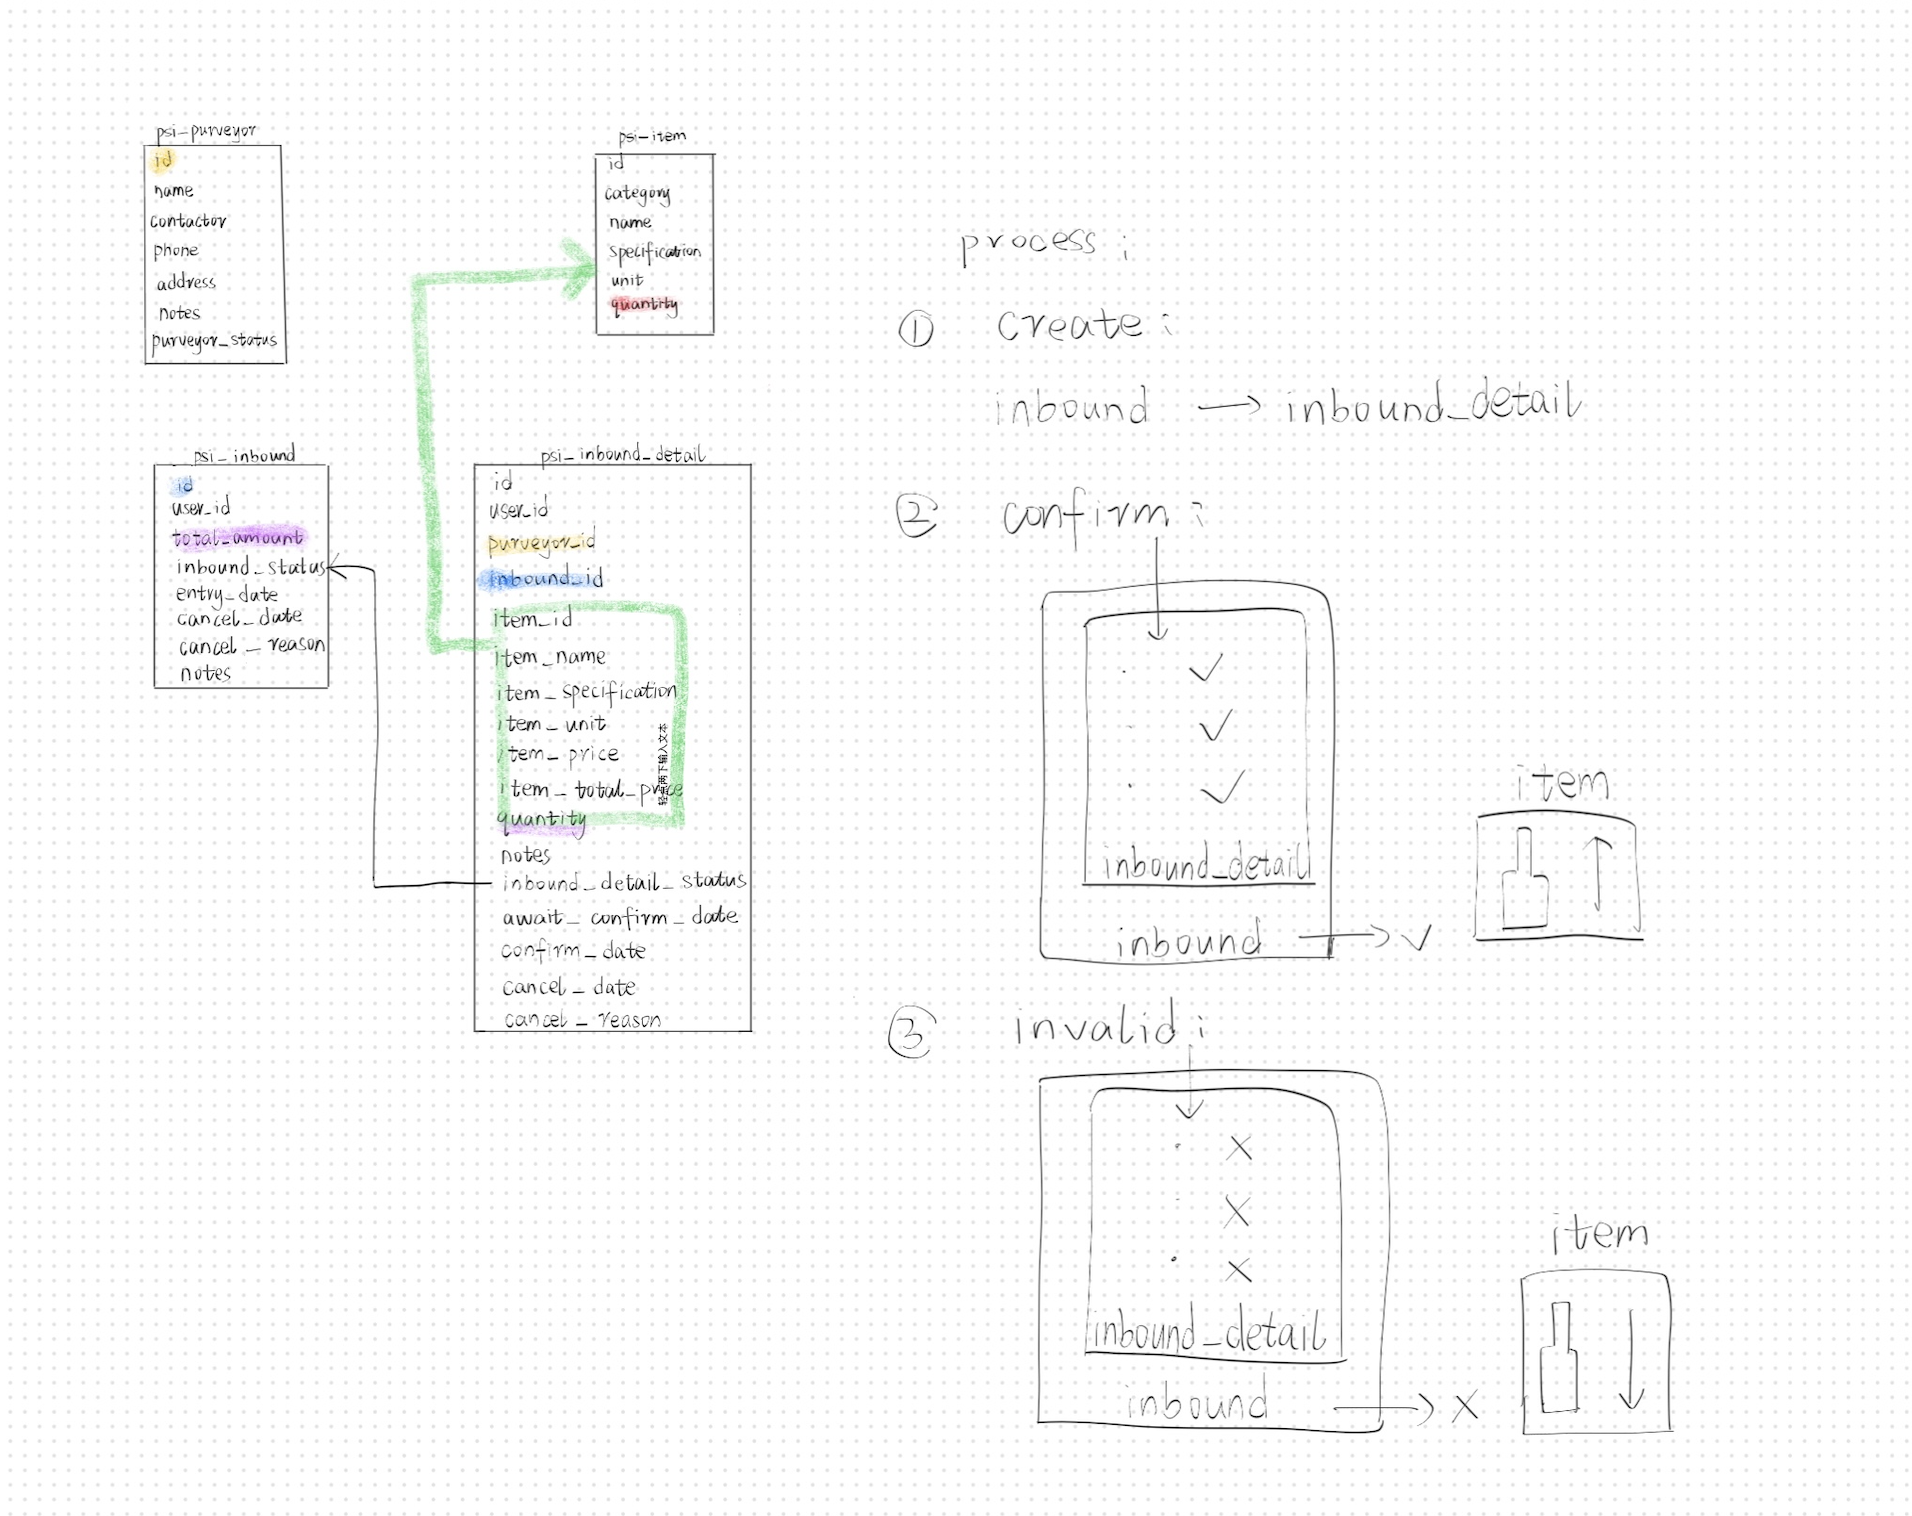 psi_purveyor
id
name
contactor
phone
address
notes
purveyor_status
psi_item
id
category
name
specification
unit
quantity
psi_inbound
id
user_id
total_amount
inbound_status
entry_date
cancel_date
cancel_reason
notes
psi_inbound_detail
id
user_id
purveyor_id
inbound_id
item_id
item_name
item_specification
item_unit
item_price
item_total_price
quantity
notes
inbound_detail_status
await_confirm_date
confirm_date
cancel_date
cancel_reason
轻点两下输入文本
process:
① create:
inbound → inbound_detail
② confirm:
inbound_detail
inbound → ✓
item
③ invalid:
inbound_detail
inbound → X
item